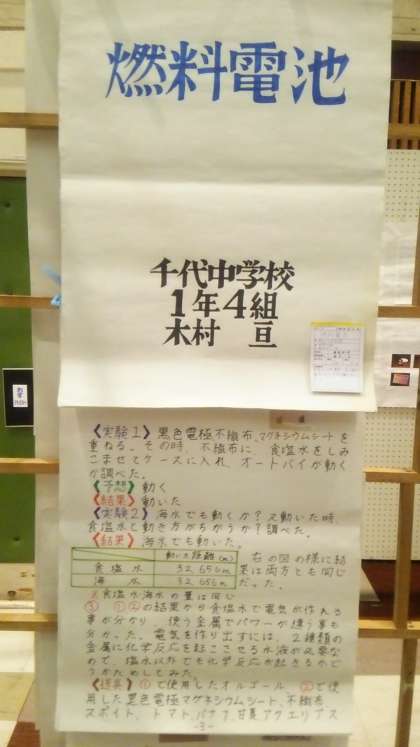 燃料電池
千代中学校
1年4組
木村 亘
《実験1》黒色電極不織布、マグネシウムシートを
重ねる。その時、不織布に食塩水をしみ
こませてケースに入れ、オートバイが動く
か調べた。
《予想》動く
《結果》動いた
《実験2》海水でも動くか?又動いた時、
食塩水と動き方がちがうか?調べた。
《結果》海水でも動いた。
動いた距離(m)
食塩水 32,656m
海水 32,656m
右の図の様に結
果は両方とも同じ
だった。
※食塩水海水の量は同じ
③ ①②の結果から食塩水で電気が作れる
事が分かり 使う金属でパワーが違う事も
分かった。電気を作り出すには、2種類の
金属に化学反応を起こさせる水液が必要な
ので、塩水以外でも化学反応が起きるかど
うかためしてみた。
《道具》①で使用したオルゴール ②で使
用した黒色電極マグネシウムシート、不織布
スポイト、トマト、バナナ、甘夏アクエリアス
-3-